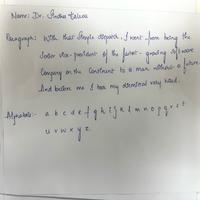 Name: Dr. Sudha
Paragraph: With that single dispatch, I went from being the
Senior vice-president of the fastest-growing software
Company on the Continent to a man without a future.
And before me I took my dismissal very hard.
Alphabets: a b c d e f g h i j k l m n o p q r s t
u v w x y z.